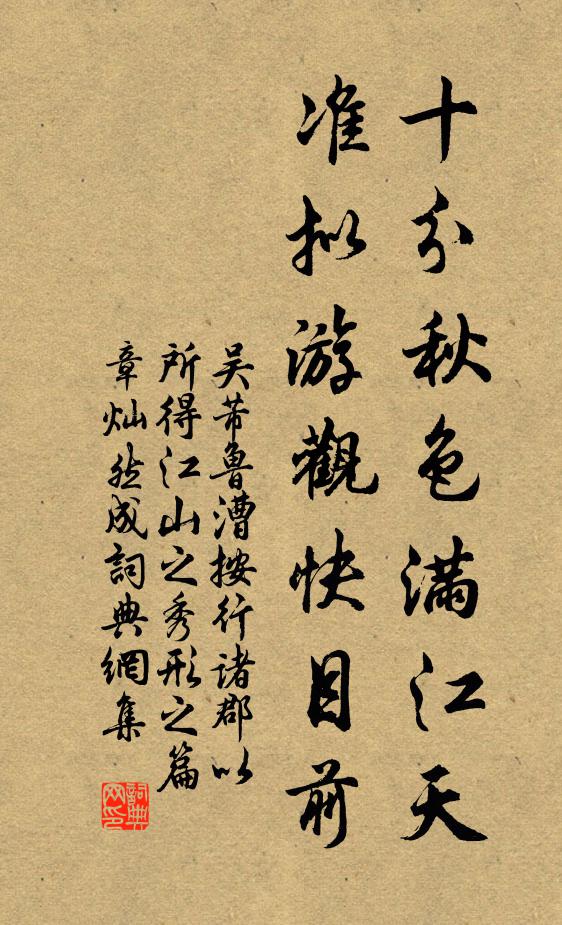 十分秋色滿江天
准拟游觀快目前
吴芾魯漕按行诸郡以
所得江山之秀形之篇
章灿然成詞典網集
詞典网印